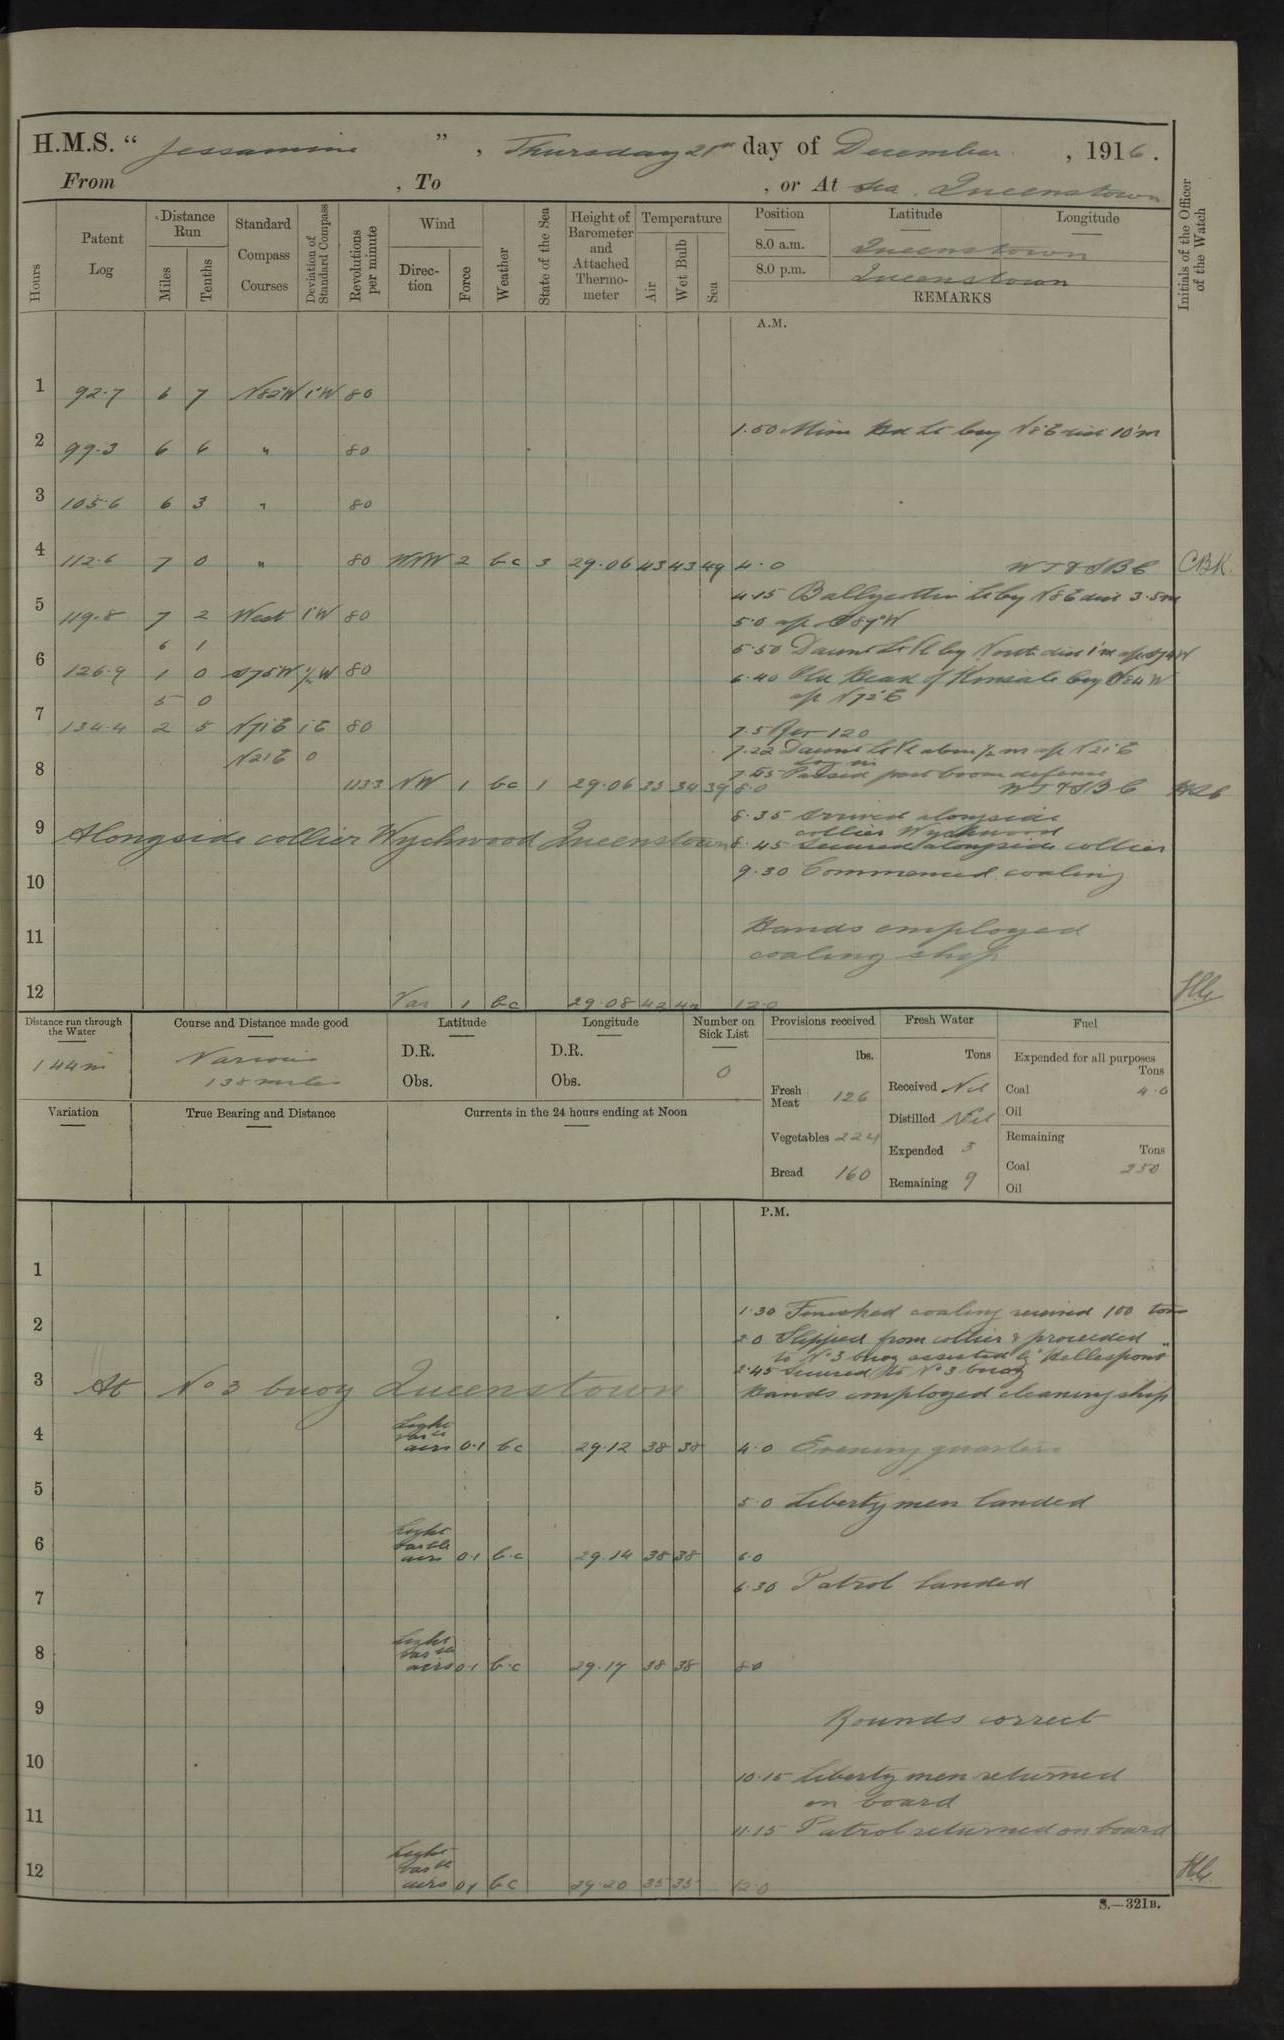 H.M.S. “ Jessamine ” , Thursday 21st day of December , 1916 .
From , To , or At Sea . Queenstown
Hours
Patent Log
Distance Run
Miles
Tenths
Standard Compass Courses
Deviation of Standard Compass
Revolutions per minute
Wind
Direction
Force
Weather
State of the Sea
Height of Barometer and Attached Thermometer
Temperature
Air
Wet Bulb
Sea
Position Latitude Longitude
8.0 a.m. Queenstown
8.0 p.m. Queenstown
REMARKS
Initials of the Officer of the Watch
A.M.
1 92.7 6 7 N82W 1°W 80
1.50 Mine Hd Lt brg N8E dist 10'm
2 99.3 6 6 " 80
3 105.6 6 3 " 80
4 112.6 7 0 " 80 WNW 2 bc 3 29.06 43 43 49 4.0 CBK.
4.15 Ballycottin Lt brg N8E dist 3.5m
5 119.8 7 2 West 1°W 80
5.0 a/c S89°W
6 1
5.50 Daunt Lt Vl brg North dist 1'm a/c S74W
6 126.9 1 0 S75W ½W 80
6.40 Old Head of Kinsale brg N84W
a/c N72°E
5 0
7 134.4 2 5 N71E 1E 80
7.5 Rev 120
N21E 0
7.22 Daunt Lt Vl abeam ½ m a/c N21E
7.45 Passed port boom defence
8 1133 NW 1 bc 1 29.06 33 34 39 8.0
8.35 Arrived alongside
collier Wychwood
9 Alongside collier Wychwood Queenstown
8.45 Secured alongside collier
9.30 Commenced coaling
10
11
Hands employed
coaling ship
12 Var 1 bc 29.08 42 42 12.0
Distance run through the Water
144m
Course and Distance made good
Various
138 miles
Latitude
D.R.
Obs.
Longitude
D.R.
Obs.
Number on Sick List
0
Provisions received
lbs.
Fresh Meat 126
Vegetables 224
Bread 160
Fresh Water
Tons
Received Nil
Distilled Nil
Expended 3
Remaining 9
Fuel
Expended for all purposes
Tons
Coal 4.0
Oil
Remaining
Tons
Coal 250
Oil
Variation
True Bearing and Distance
Currents in the 24 hours ending at Noon
P.M.
1
1.30 Finished coaling received 100 tons
2
2.0 Slipped from collier & proceeded
to No 3 buoy assisted by "Hellespont"
2.45 Secured to No 3 buoy
3 At No 3 buoy Queenstown
Hands employed cleaning ship
4 Light var ble airs 0.1 bc 29.12 38 38 4.0 Evening quarters
5
5.0 Liberty men landed
6 Light var ble airs 0.1 b.c 29.14 38 38 6.0
6.30 Patrol landed
7
8 Light var ble airs 0.1 b.c 29.17 38 38 8.0
9
Rounds correct
10
10.15 Liberty men returned
on board
11
11.15 Patrol returned on board
12 Light var ble airs 0.1 bc 29.20 35 35 12.0
S.—321B.